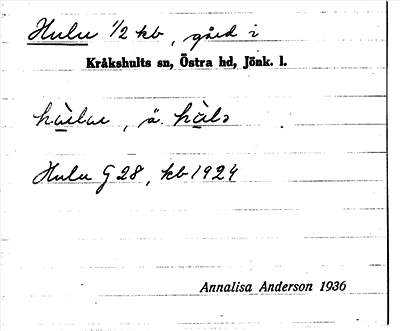 Hulu 1/2 kb, gård i
Kråkshults sn, Östra hd, Jönk. l.
, ä.
Hulu G 28, kb 1924
Annalisa Anderson 1936